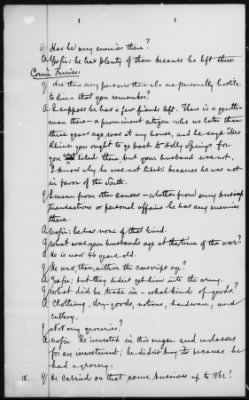 Q Has he any enemies there?
A Yes sir; he has plenty of them because he left there
Q Are there any persons there who are personally hostile
to him that you remember?
A I suppose he has a few friends left. There is a gentle-
man there - a prominent citizen who us later than
three years ago was at my house, and he says Mrs
you ought to go back to Holly Springs for
you had left there but your husband was not.
I know why he was not liked: because he was not
in favor of the South.
Q I mean from other causes - whether from any business
transactions or personal affairs he has any enemies
there.
A No sir: he has none of that kind.
Q What was your husbands age at the time of the war?
A He is now 76 years old.
Q He was then, within the conscript age?
A Yes sir; but they didn't get him into the army.
Q What did he trade in - what kinds of goods?
A Clothing, dry-goods, notions, hardware, and
cutlery.
Q Not any groceries?
A No sir. He invested in this sugar and molasses
for an investment; he didn't buy to because he
had a grocery.
18. Q He carried on that same business up to 1862?